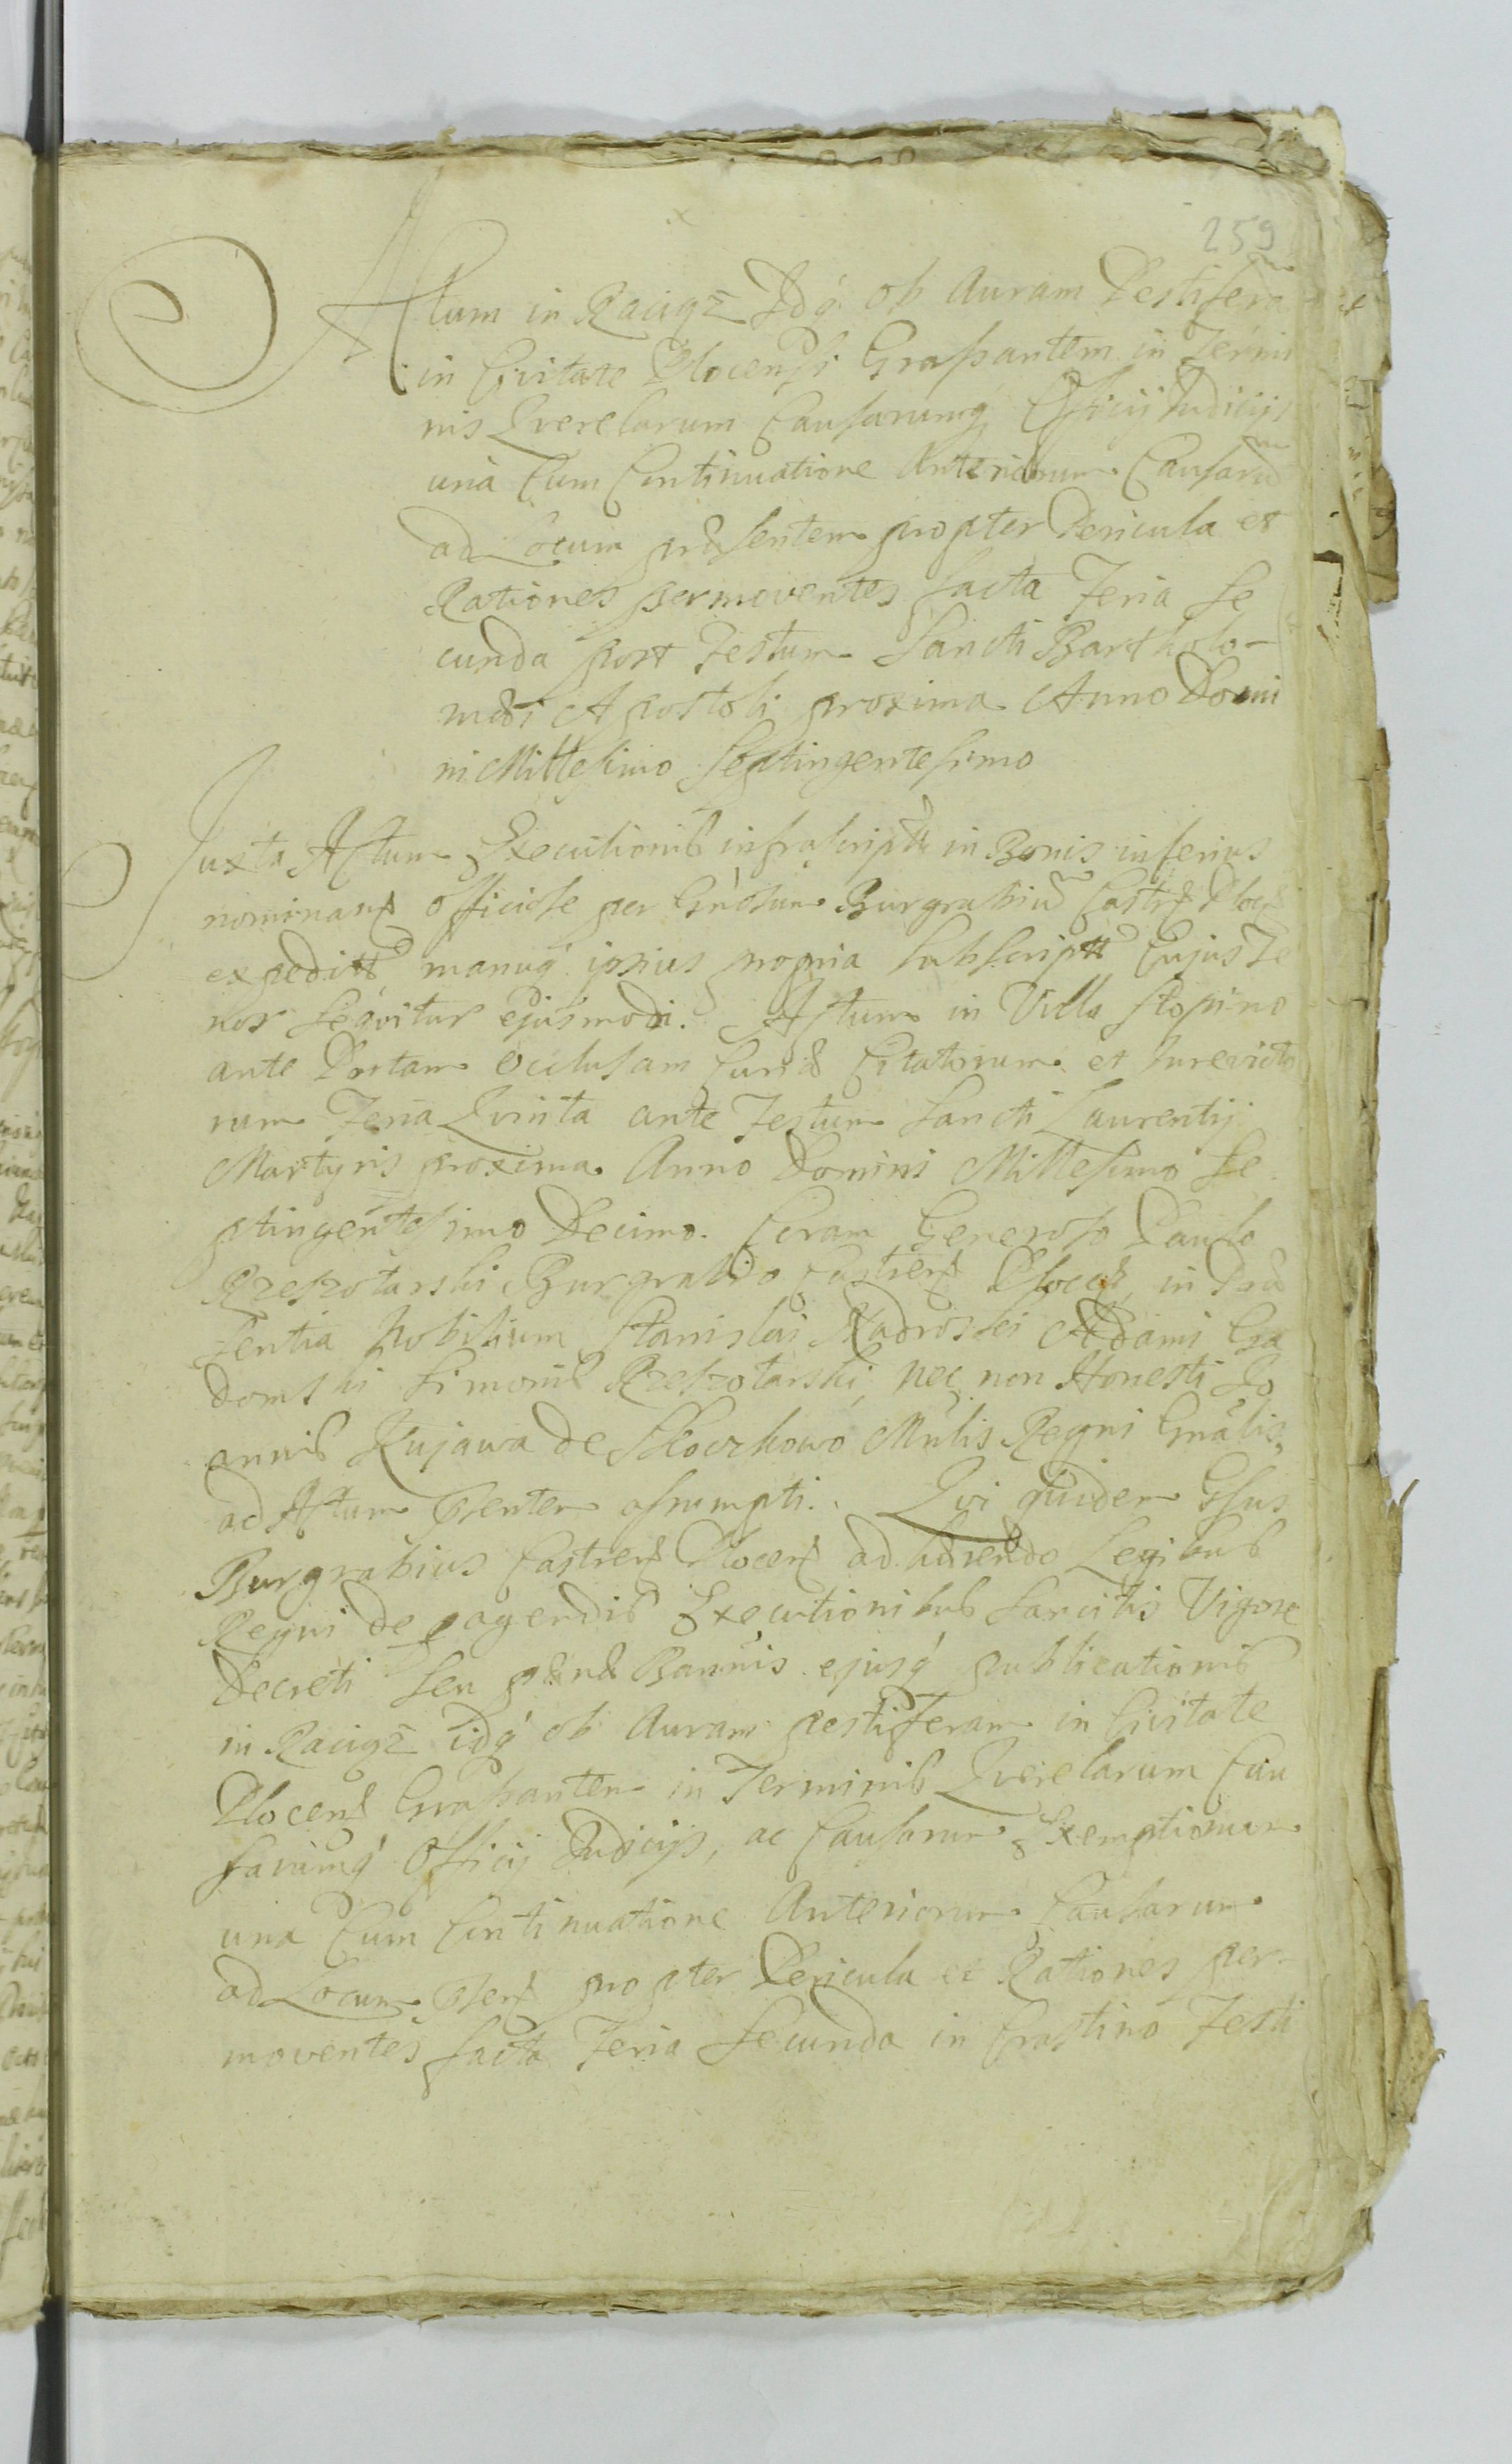 259
Actum in Raciąż Idq́ ob Auram Pestiferam
in Civitate Plocensi Grassantem in Termi
nis Qverelarum Causarumq́ Officij Iudicijs
unà Cum Continuatione Anteriorum Causarum
ad Locum præsentem propter Pericula et
Rationes permoventes facta Feria Se
cunda post Festum Sancti Bartholo-
mæi Apostoli proxima Anno Domi
ni Millesimo Septingentesimo
Iuxta Actum Executionis infrascriptt in Bonis inferius
nominan officiose per Gnosum Burgrabiũ Castrẽ Ploceñ
expeditt manuq́ ipsius propria subscriptt Cujus Te
nor seqvitur ejusmodi. Actum in Villa Slopino
ante Portam occlusam Curiæ Citatorum et Jurevicto
rum Feria Qvinta ante Festum Sancti Laurentij
Martyris proxima Anno Domini Millesimo Se
ptingentesimo Decimo. Coram Generoso Paulo
Rzeszotarski Burgrabio Castreñ Ploceñ, in Præ
sentia Nobilium Stanislai Nadroski Adami Ga
domski Simonis Rzeszotarski, nec non Honesti Jo
annis Kujawa de Skoczkowo Mnlis Regni Gnalis,
ad Actum psentem assumpti. Qvi quidem Gsus
Burgrabius Castreñ Ploceñ adhærendo Legibus
Regni de peragendis Executionibus Sancitis Vigore
Decreti seu pænæ Bannis ejusq́ publicationis
in Raciąż idq́ ob Auram pestiferam in Civitate
Ploceñ Grassantem in Terminis Qverelarum Cau
sarumq́ Officij Iudicijs, ac Causarum Exemptionum
una Cum Continuatione Anteriorum Causarum
ad Locum pseñ propter Pericula et Rationes per-
moventes facta Feria Secunda in Crastino Festi